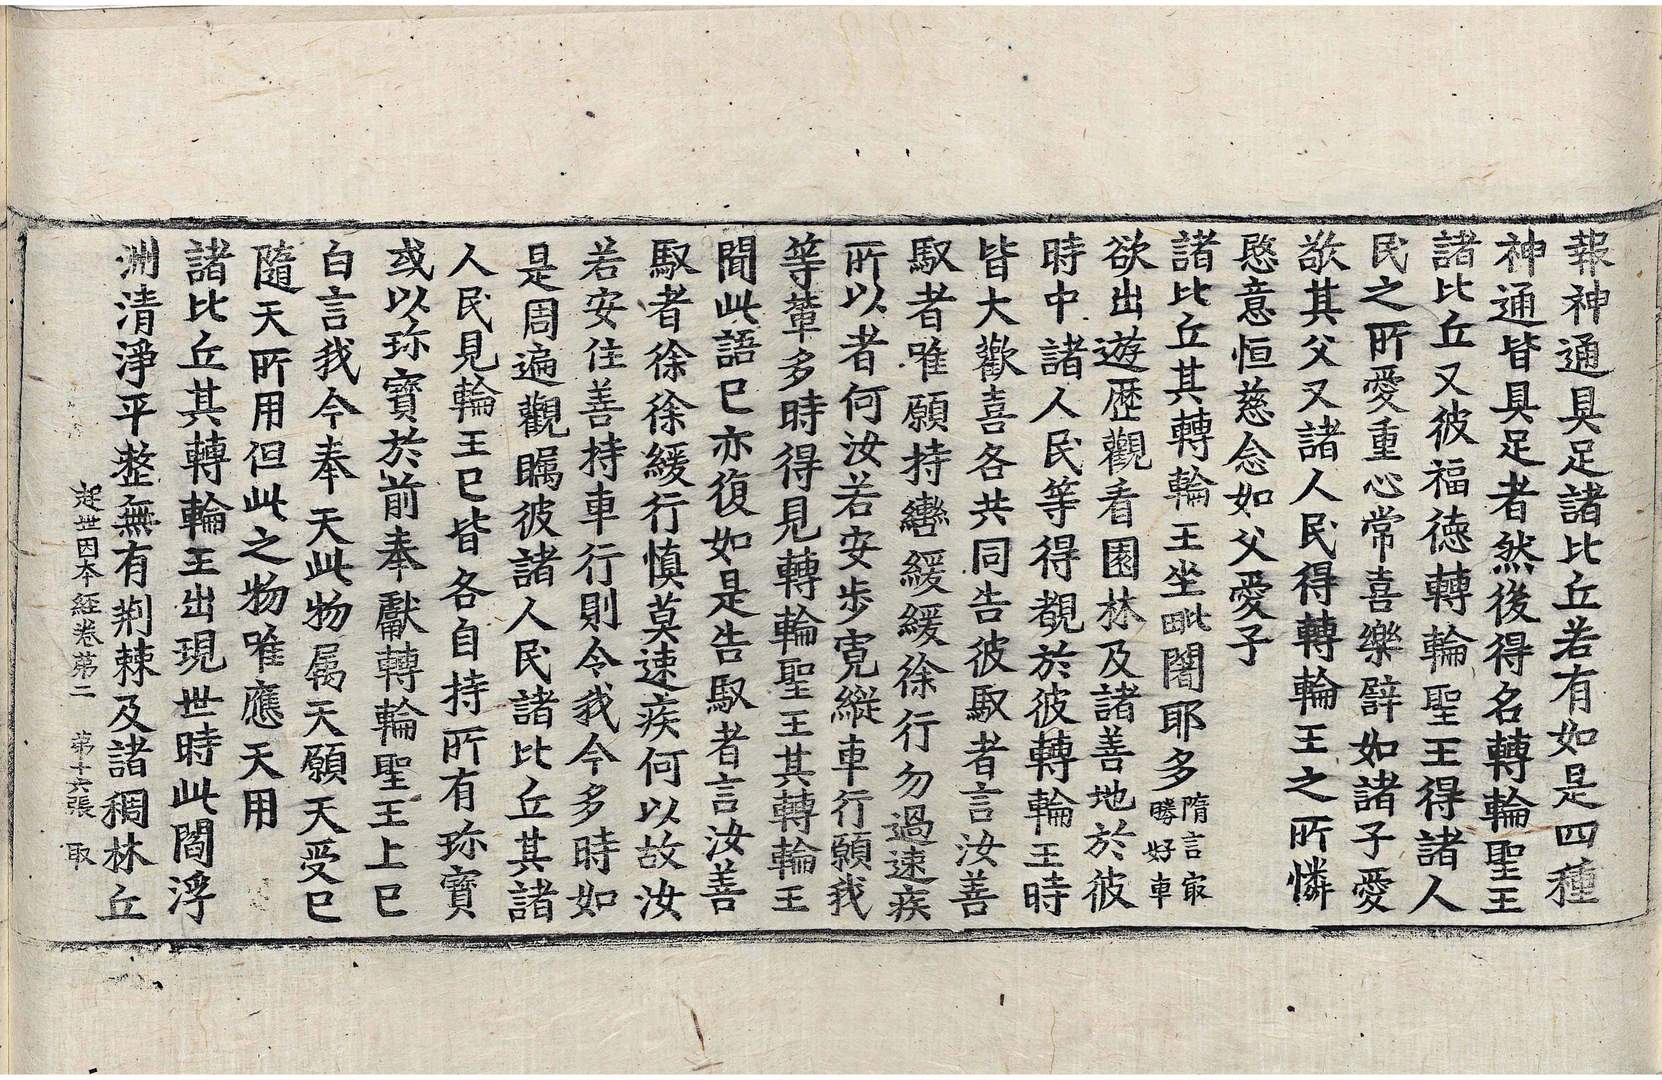 報神通具足諸比丘若有如是四種
神通皆具足者然後得名轉輪聖王
諸比丘又彼福德轉輪聖王得諸人
民之所愛重心常喜樂辟如諸子愛
敬其父又諸人民得轉輪王之所憐
愍意恒慈念如父愛子
諸比丘其轉輪王坐毗闍耶多隋言最勝好車
欲出遊歷觀看園林及諸善地於彼
時中諸人民等得覩於彼轉輪王時
皆大歡喜各共同告彼馭者言汝善
馭者唯願持轡緩緩徐行勿過速疾
所以者何汝若安步寬縱車行願我
等輩多時得見轉輪聖王其轉輪王
聞此語已亦復如是告馭者言汝善
馭者徐徐緩行慎莫速疾何以故汝
若安住善持車行則令我今多時如
是周遍觀瞩彼諸人民諸比丘其諸
人民見輪王已皆各自持所有珎寶
或以珎寶於前奉獻轉輪聖王上已
白言我今奉天此物属天願天受已
隨天所用但此之物唯應天用
諸比丘其轉輪王出現世時此閻浮
洲清淨平整無有荊棘及諸稠林丘
起世因本経卷第二 第十六張 取